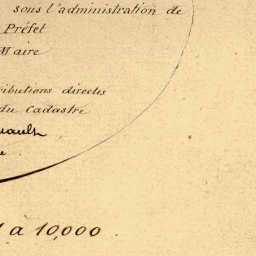 sous l'administration de
Préfet
Maire
ributions directes
du Cadastre
uault
1 a 10,000